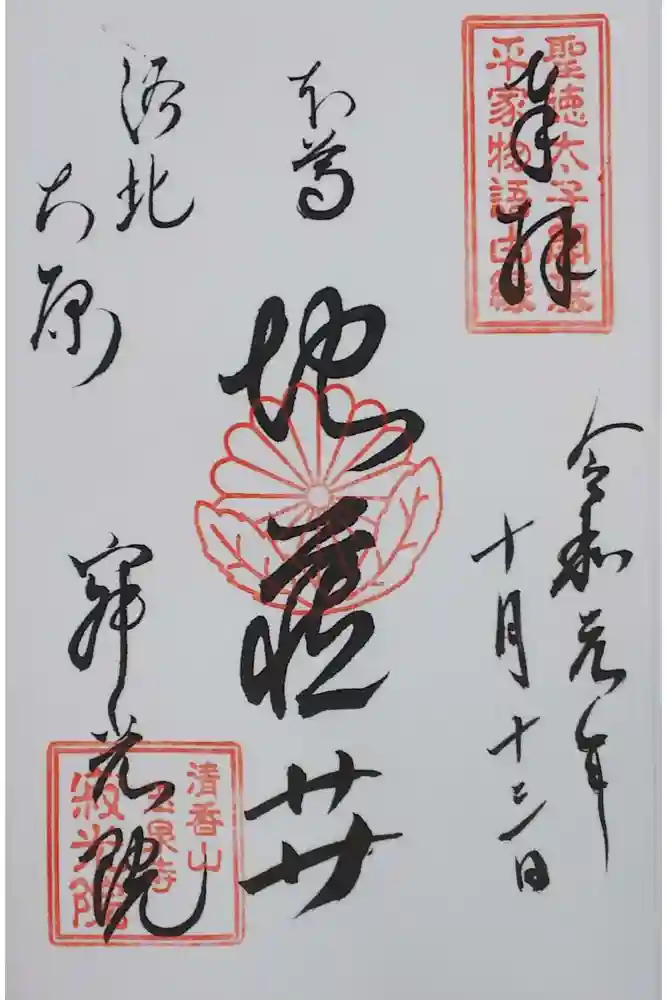 奉拝
聖徳太子開基
平家物語由縁
令和元年
十月十三日
本尊
地蔵菩薩
洛北
大原
寂光院
清香山
玉泉寺
寂光院